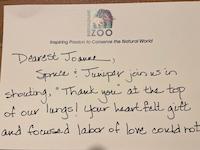 ZOO
Inspiring Passion to Conserve the Natural World
Dearest Joanne,
Spruce & Juniper join us in
shouting, "Thank you" at the top
of our lungs! Your heartfelt gift
and focused labor of love could not